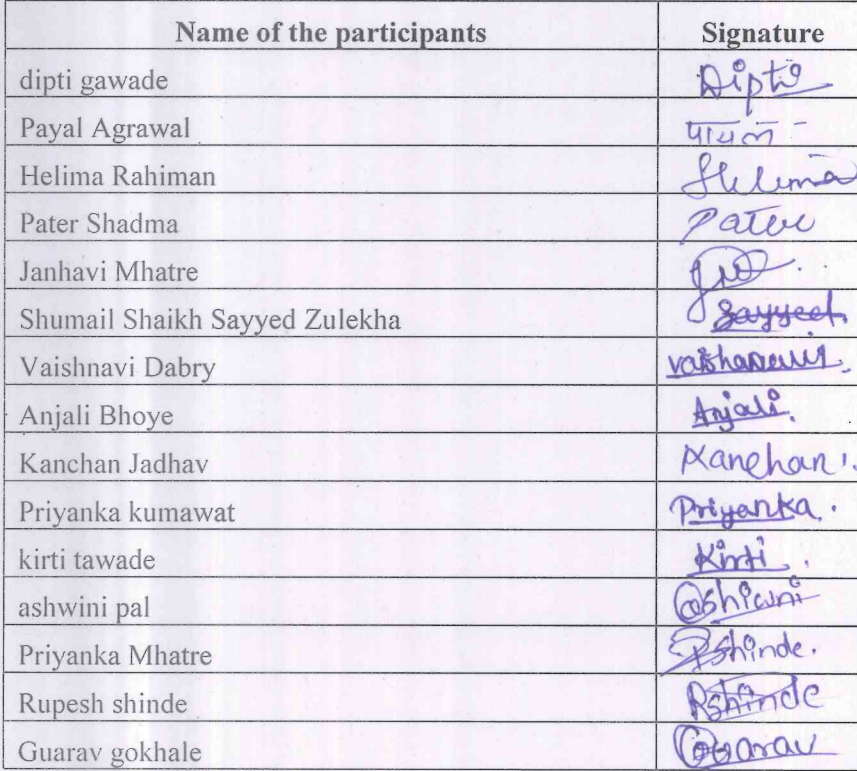 Name of the participants Signature
dipti gawade Dipti
Payal Agrawal पायल
Helima Rahiman Helima
Pater Shadma Pater
Janhavi Mhatre
Shumail Shaikh Sayyed Zulekha Sayyed
Vaishnavi Dabry
Anjali Bhoye Anjali
Kanchan Jadhav Kanchan
Priyanka kumawat Priyanka
kirti tawade Kirti
ashwini pal ashwini
Priyanka Mhatre Pshinde
Rupesh shinde Rshinde
Guarav gokhale Guarav